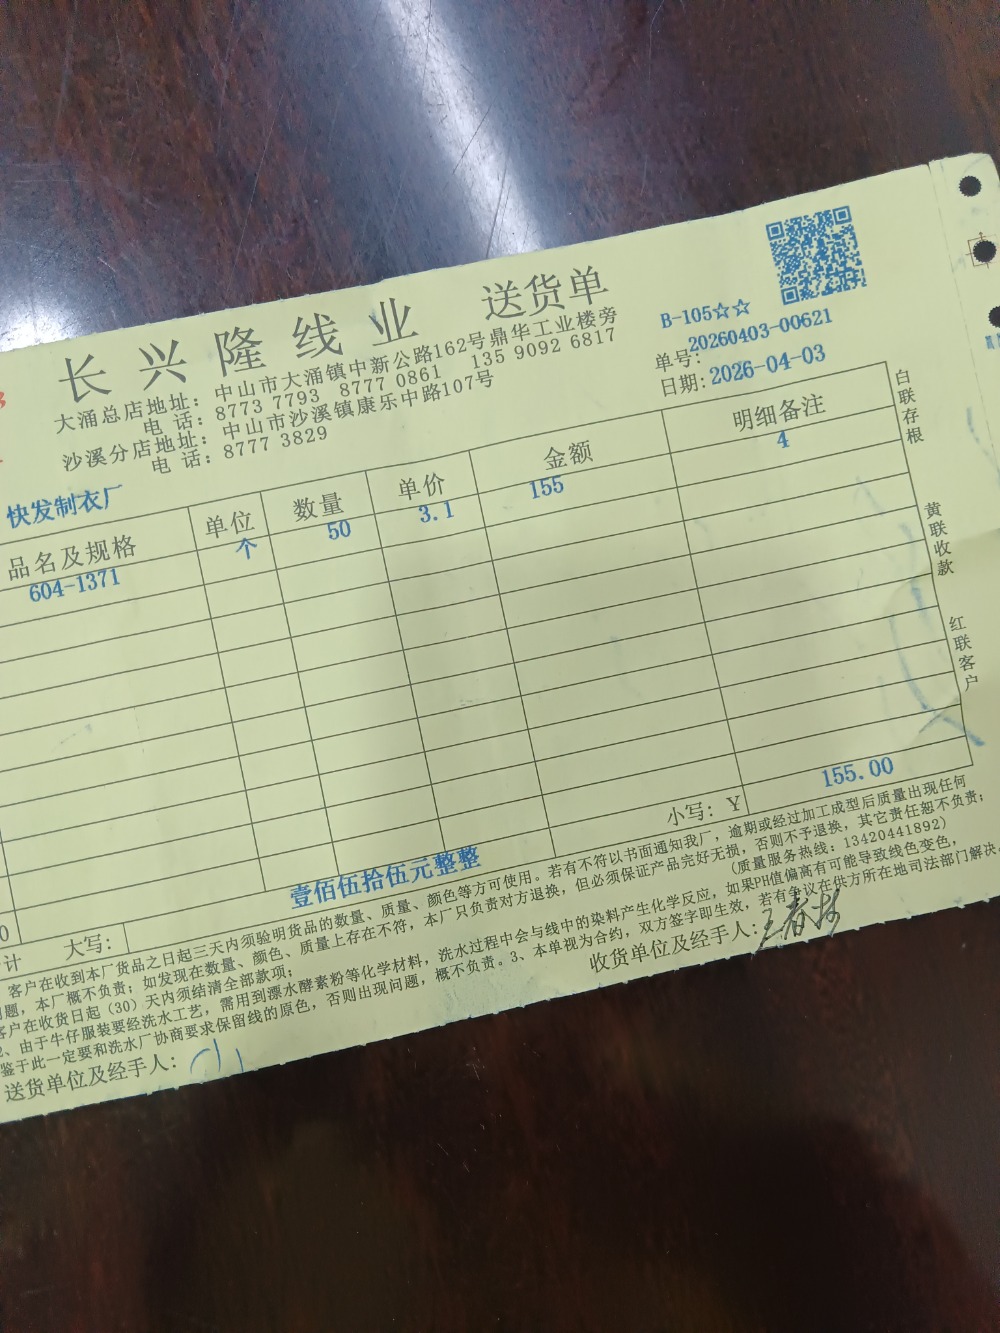 长兴隆线业 送货单
大涌总店地址：中山市大涌镇中新公路162号鼎华工业楼旁
电 话：8773 7793 8777 0861 135 9092 6817
沙溪分店地址：中山市沙溪镇康乐中路107号
电 话：8777 3829
B-105☆☆
单号：20260403-00621
日期：2026-04-03
快发制衣厂
品名及规格 单位 数量 单价 金额 明细备注
604-1371 个 50 3.1 155 4
白联存根
黄联收款
红联客户
小写：￥ 155.00
计 大写： 壹佰伍拾伍元整整
客户在收到本厂货品之日起三天内须验明货品的数量、质量、颜色等方可使用。若有不符以书面通知我厂，逾期或经过加工成型后质量出现任何
问题，本厂概不负责；如发现在数量、颜色、质量上存在不符，本厂只负责对方退换，但必须保证产品完好无损，否则不予退换，其它责任恕不负责；
客户在收货日起（30）天内须结清全部款项； （质量服务热线：13420441892）
2、由于牛仔服装要经洗水工艺，需用到漂水酵素粉等化学材料，洗水过程中会与线中的染料产生化学反应，如果PH值偏高有可能导致线色变色，
鉴于此一定要和洗水厂协商要求保留线的原色，否则出现问题，概不负责。3、本单视为合约，双方签字即生效，若有争议在供方所在地司法部门解决。
送货单位及经手人： 收货单位及经手人：